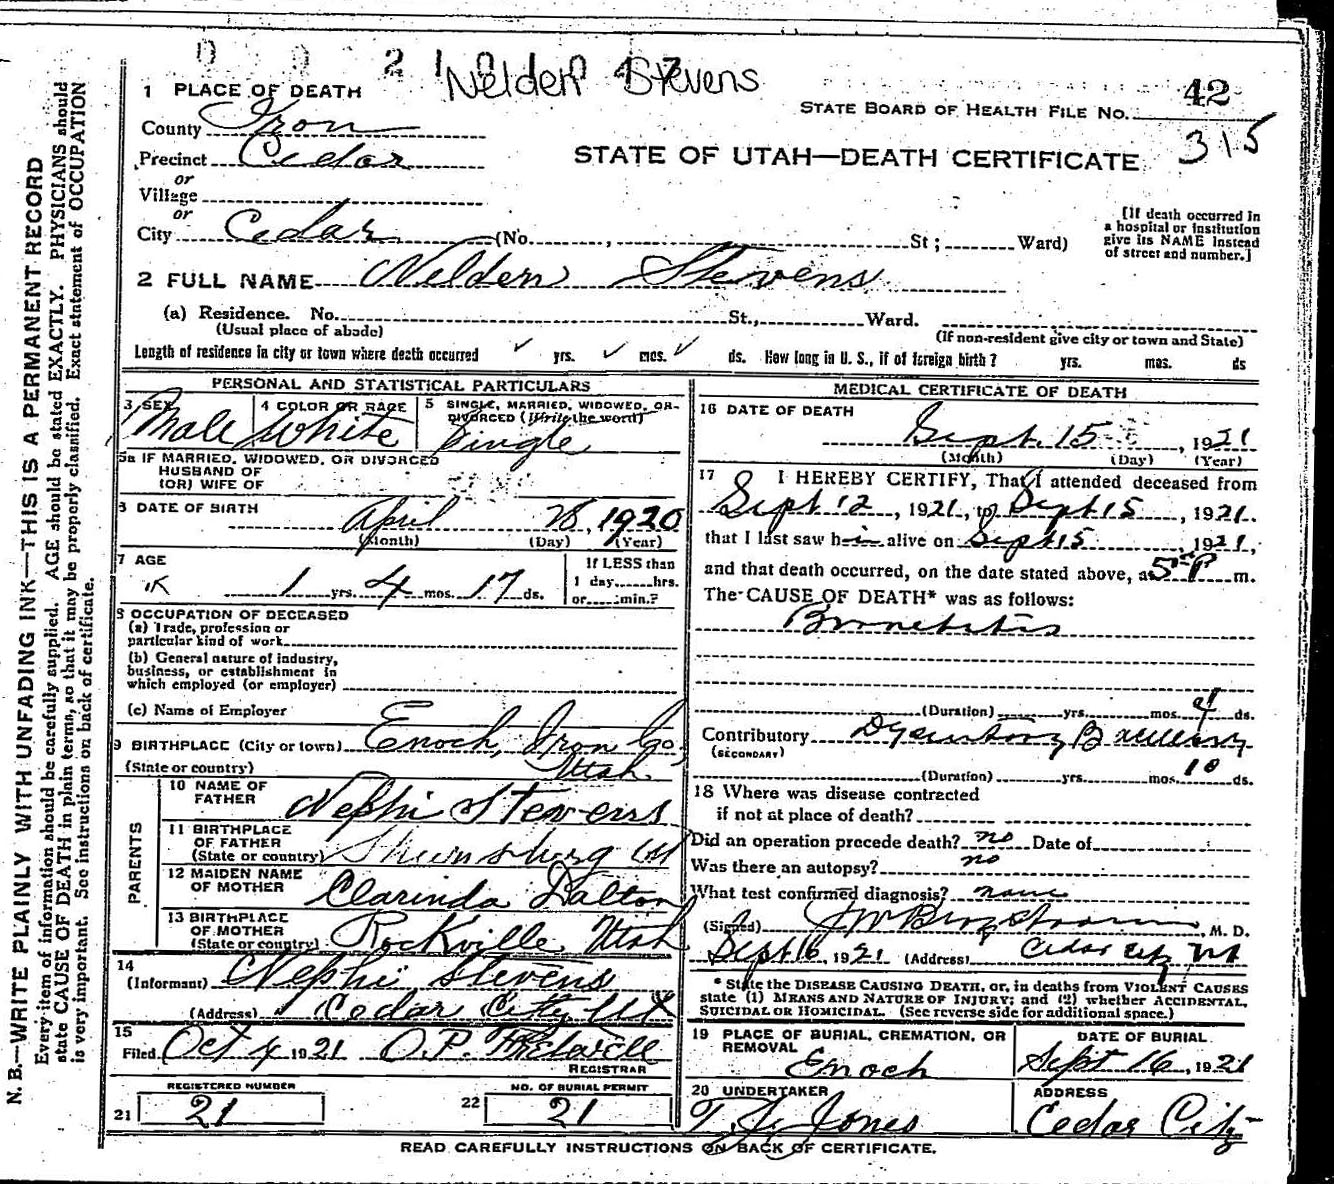 Nelden Stevens
42
STATE BOARD OF HEALTH FILE No.
315
1 PLACE OF DEATH
County Iron
Precinct Cedar
STATE OF UTAH—DEATH CERTIFICATE
or
Village
or
City Cedar (No. , St ; Ward)
[If death occurred in
a hospital or institution
give its NAME instead
of street and number.]
2 FULL NAME Nelden Stevens
(a) Residence. No. St., Ward.
(Usual place of abode)
(If non-resident give city or town and State)
Length of residence in city or town where death occurred ✓ yrs. ✓ mos. ✓ ds. How long in U. S., if of foreign birth? yrs. mos. ds
PERSONAL AND STATISTICAL PARTICULARS
3 SEX Male
4 COLOR OR RACE White
5 SINGLE, MARRIED, WIDOWED, OR
DIVORCED (Write the word)
Single
5a IF MARRIED, WIDOWED, OR DIVORCED
HUSBAND OF
(OR) WIFE OF
6 DATE OF BIRTH April 28, 1920
(Month) (Day) (Year)
7 AGE
1 yrs. 4 mos. 17 ds.
If LESS than
1 day hrs.
or min.?
8 OCCUPATION OF DECEASED
(a) Trade, profession or
particular kind of work
(b) General nature of industry,
business, or establishment in
which employed (or employer)
(c) Name of Employer
9 BIRTHPLACE (City or town) Enoch, Iron Co.
(State or country) Utah
PARENTS
10 NAME OF
FATHER Nephi Stevens
11 BIRTHPLACE
OF FATHER
(State or country)
12 MAIDEN NAME
OF MOTHER Clarinda Dalton
13 BIRTHPLACE
OF MOTHER
(State or country) Rockville Utah
14
(Informant) Nephi Stevens
(Address) Cedar City Ut
15
Filed Oct 4 1921
REGISTRAR
REGISTERED NUMBER
21 21
NO. OF BURIAL PERMIT
22 21
MEDICAL CERTIFICATE OF DEATH
16 DATE OF DEATH
Sept. 15, 1921
(Month) (Day) (Year)
17 I HEREBY CERTIFY, That I attended deceased from
Sept 12, 1921, to Sept 15, 1921.
that I last saw h im alive on Sept 15 1921,
and that death occurred, on the date stated above, at 5 P m.
The CAUSE OF DEATH* was as follows:
(Duration) yrs. mos. ds.
Contributory
(SECONDARY)
(Duration) yrs. mos. 10 ds.
18 Where was disease contracted
if not at place of death?
Did an operation precede death? no Date of
Was there an autopsy? no
What test confirmed diagnosis? none
(Signed) M. D.
Sept 16, 1921 (Address) Cedar City Ut
* State the DISEASE CAUSING DEATH, or, in deaths from VIOLENT CAUSES
state (1) MEANS AND NATURE OF INJURY; and (2) whether ACCIDENTAL,
SUICIDAL OR HOMICIDAL. (See reverse side for additional space.)
19 PLACE OF BURIAL, CREMATION, OR
REMOVAL
Enoch
DATE OF BURIAL
Sept 16, 1921
20 UNDERTAKER
T. J. Jones
ADDRESS
Cedar City
READ CAREFULLY INSTRUCTIONS ON BACK OF CERTIFICATE.
N. B.—WRITE PLAINLY WITH UNFADING INK—THIS IS A PERMANENT RECORD
Every item of information should be carefully supplied. AGE should be stated EXACTLY. PHYSICIANS should
state CAUSE OF DEATH in plain terms, so that it may be properly classified. Exact statement of OCCUPATION
is very important. See instructions on back of certificate.